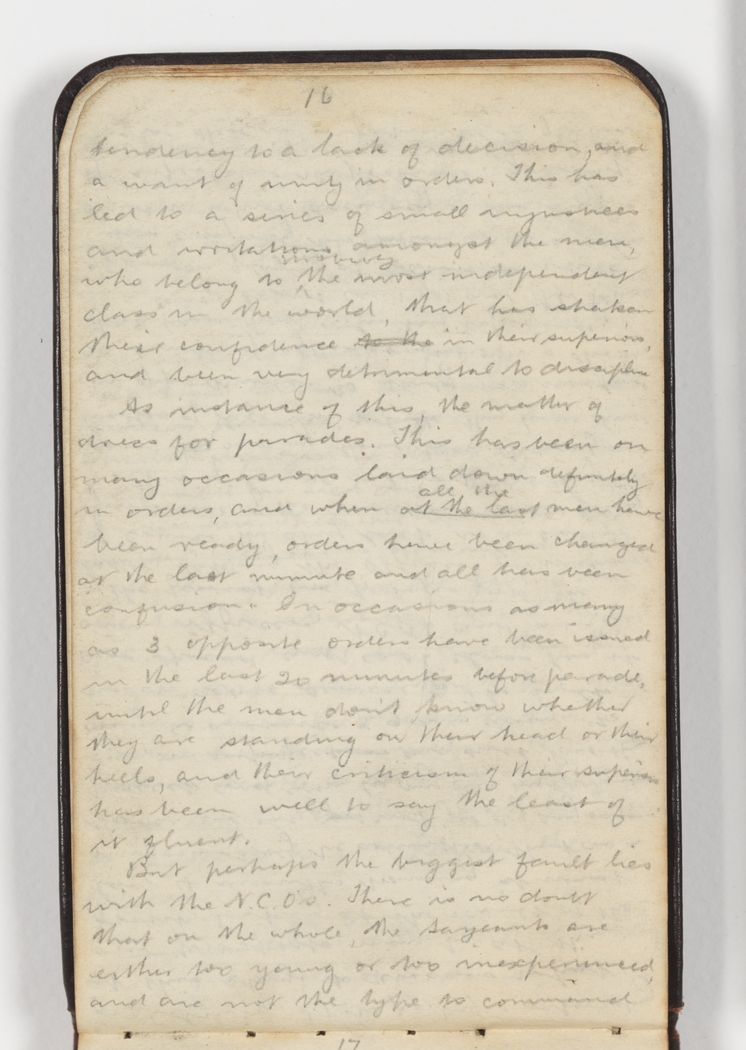 16
tendency to a lack of decision, and
a want of unity in orders. This has
led to a series of small injustices
and irritations amongst the men,
who belong to the most independent
class in the world, that has shaken
their confidence to the in their superiors,
and been very detrimental to discipline
As instance of this, the matter of
dress for parades. This has been on
many occasions laid down definitely
all the
in orders, and when at the last men have
been ready, orders have been changed
at the last minute and all has been
confusion. On occasions as many
as 3 opposite orders have been issued
in the last 20 minutes before parade,
until the men don't know whether
they are standing on their head or their
heels, and their criticism of their superiors
has been well to say the least of
it fluent.
But perhaps the biggest fault lies
with the N.C.O's. There is no doubt
that on the whole, the sargeants are
either too young or too inexperienced,
and are not the type to command
17